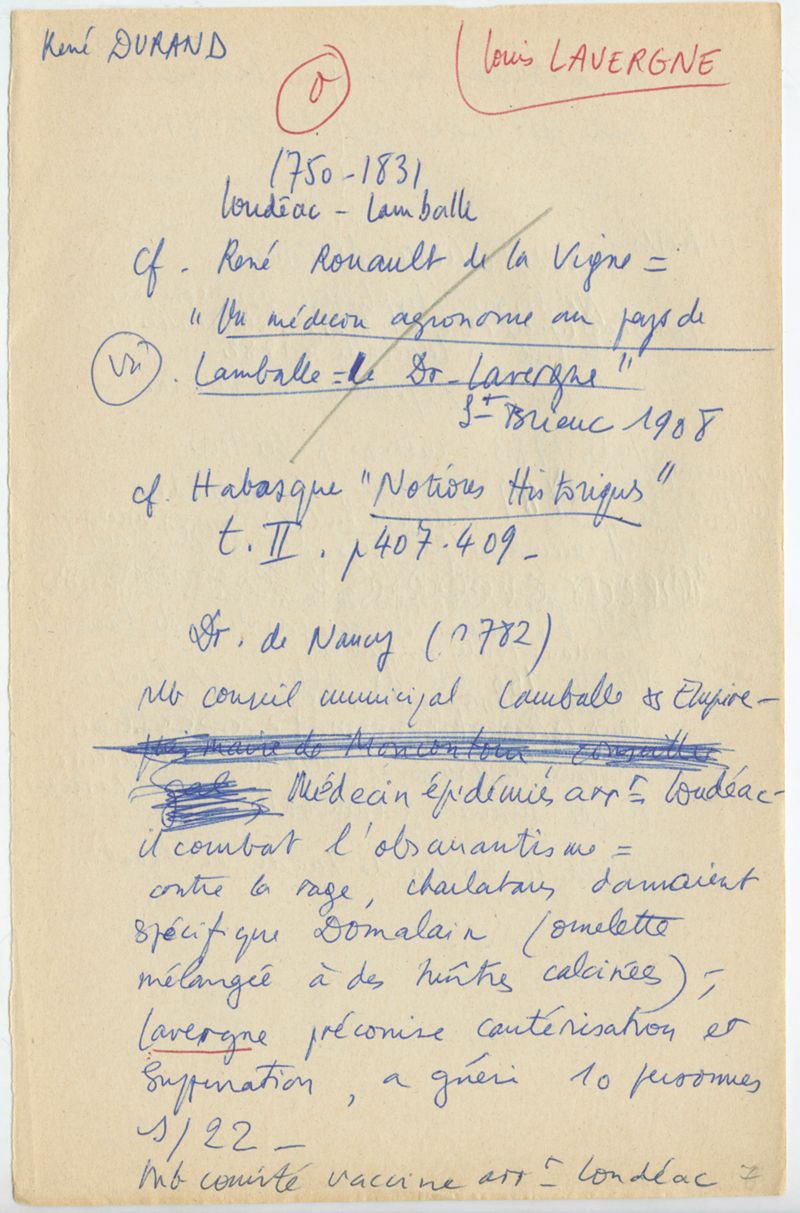 René DURAND
Louis LAVERGNE
0
1750-1831
Loudéac - Lamballe
cf. René Rouault de la Vigne =
"Un médecin agronome au pays de
vu . Lamballe = le Dr Lavergne"
St Brieuc 1908
cf. Habasque "Notions Historiques"
t. II. p 407.409 -
Dr. de Nancy (1782)
Mb conseil municipal Lamballe ss Empire -
puis maire de Moncontour, conseiller
gal Médecin épidémies arrt Loudéac -
il combat l'obscurantisme =
contre la rage, charlatans donnaient
spécifique Domalain (omelette
mélangée à des huîtres calcinées) ;
Lavergne préconise cautérisation et
suppuration, a guéri 10 personnes
s/22 -
Mb comité vaccine arrt Loudéac 7